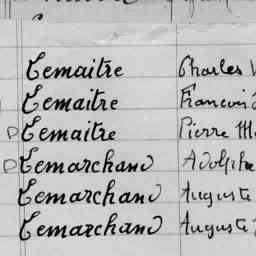 Lemaitre Charles
Lemaitre François
D Lemaitre Pierre
D Lemarchand Adolphe
Lemarchand Auguste
Lemarchand Auguste